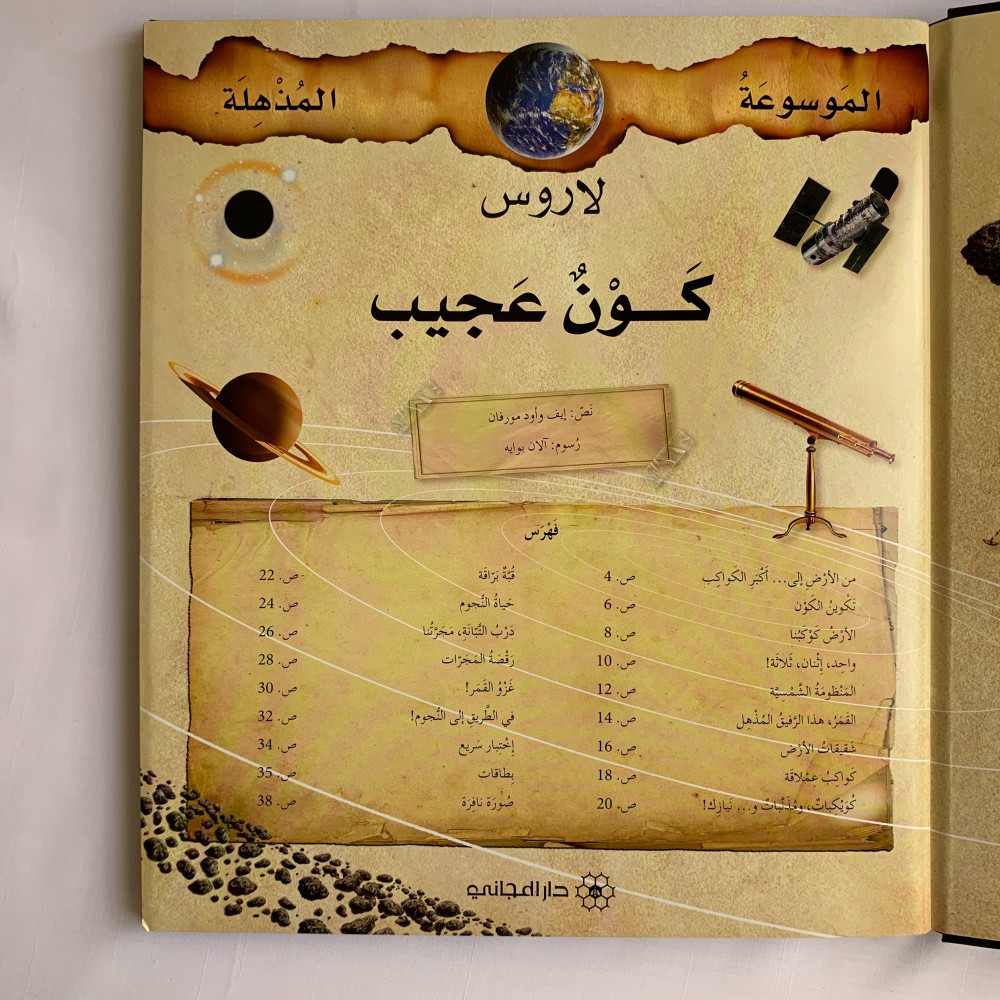 المَوسوعَةُ المُذْهِلَة
لاروس
كَـوْنٌ عَجيب
نَصّ: إيف وأود مورفان
رُسوم: آلان بوايه
فَهْرَس
من الأرْضِ إلى... أكْبَرِ الكَواكِب ص. 4
تَكْوينُ الكَوْن ص. 6
الأرْضُ كَوْكَبُنا ص. 8
واحِد، إثْنان، ثَلاثَة! ص. 10
المَنْظومَةُ الشَّمْسِيَّة ص. 12
القَمَرُ، هذا الرَّفيقُ المُذْهِل ص. 14
شَقيقاتُ الأرْض ص. 16
كَواكِبُ عِمْلاقَة ص. 18
كُوَيْكِباتٌ، ومُذَنَّباتٌ و... نَيازِك! ص. 20
قُبَّةٌ بَرّاقَة ص. 22
حَياةُ النُّجوم ص. 24
دَرْبُ التَّبّانَةِ، مَجَرَّتُنا ص. 26
رَقْصَةُ المَجَرّات ص. 28
غَزْوُ القَمَر! ص. 30
في الطَّريقِ إلى النُّجوم! ص. 32
إخْتِبار سَريع ص. 34
بِطاقات ص. 35
صُورَة نافِرَة ص. 38
دار المجاني